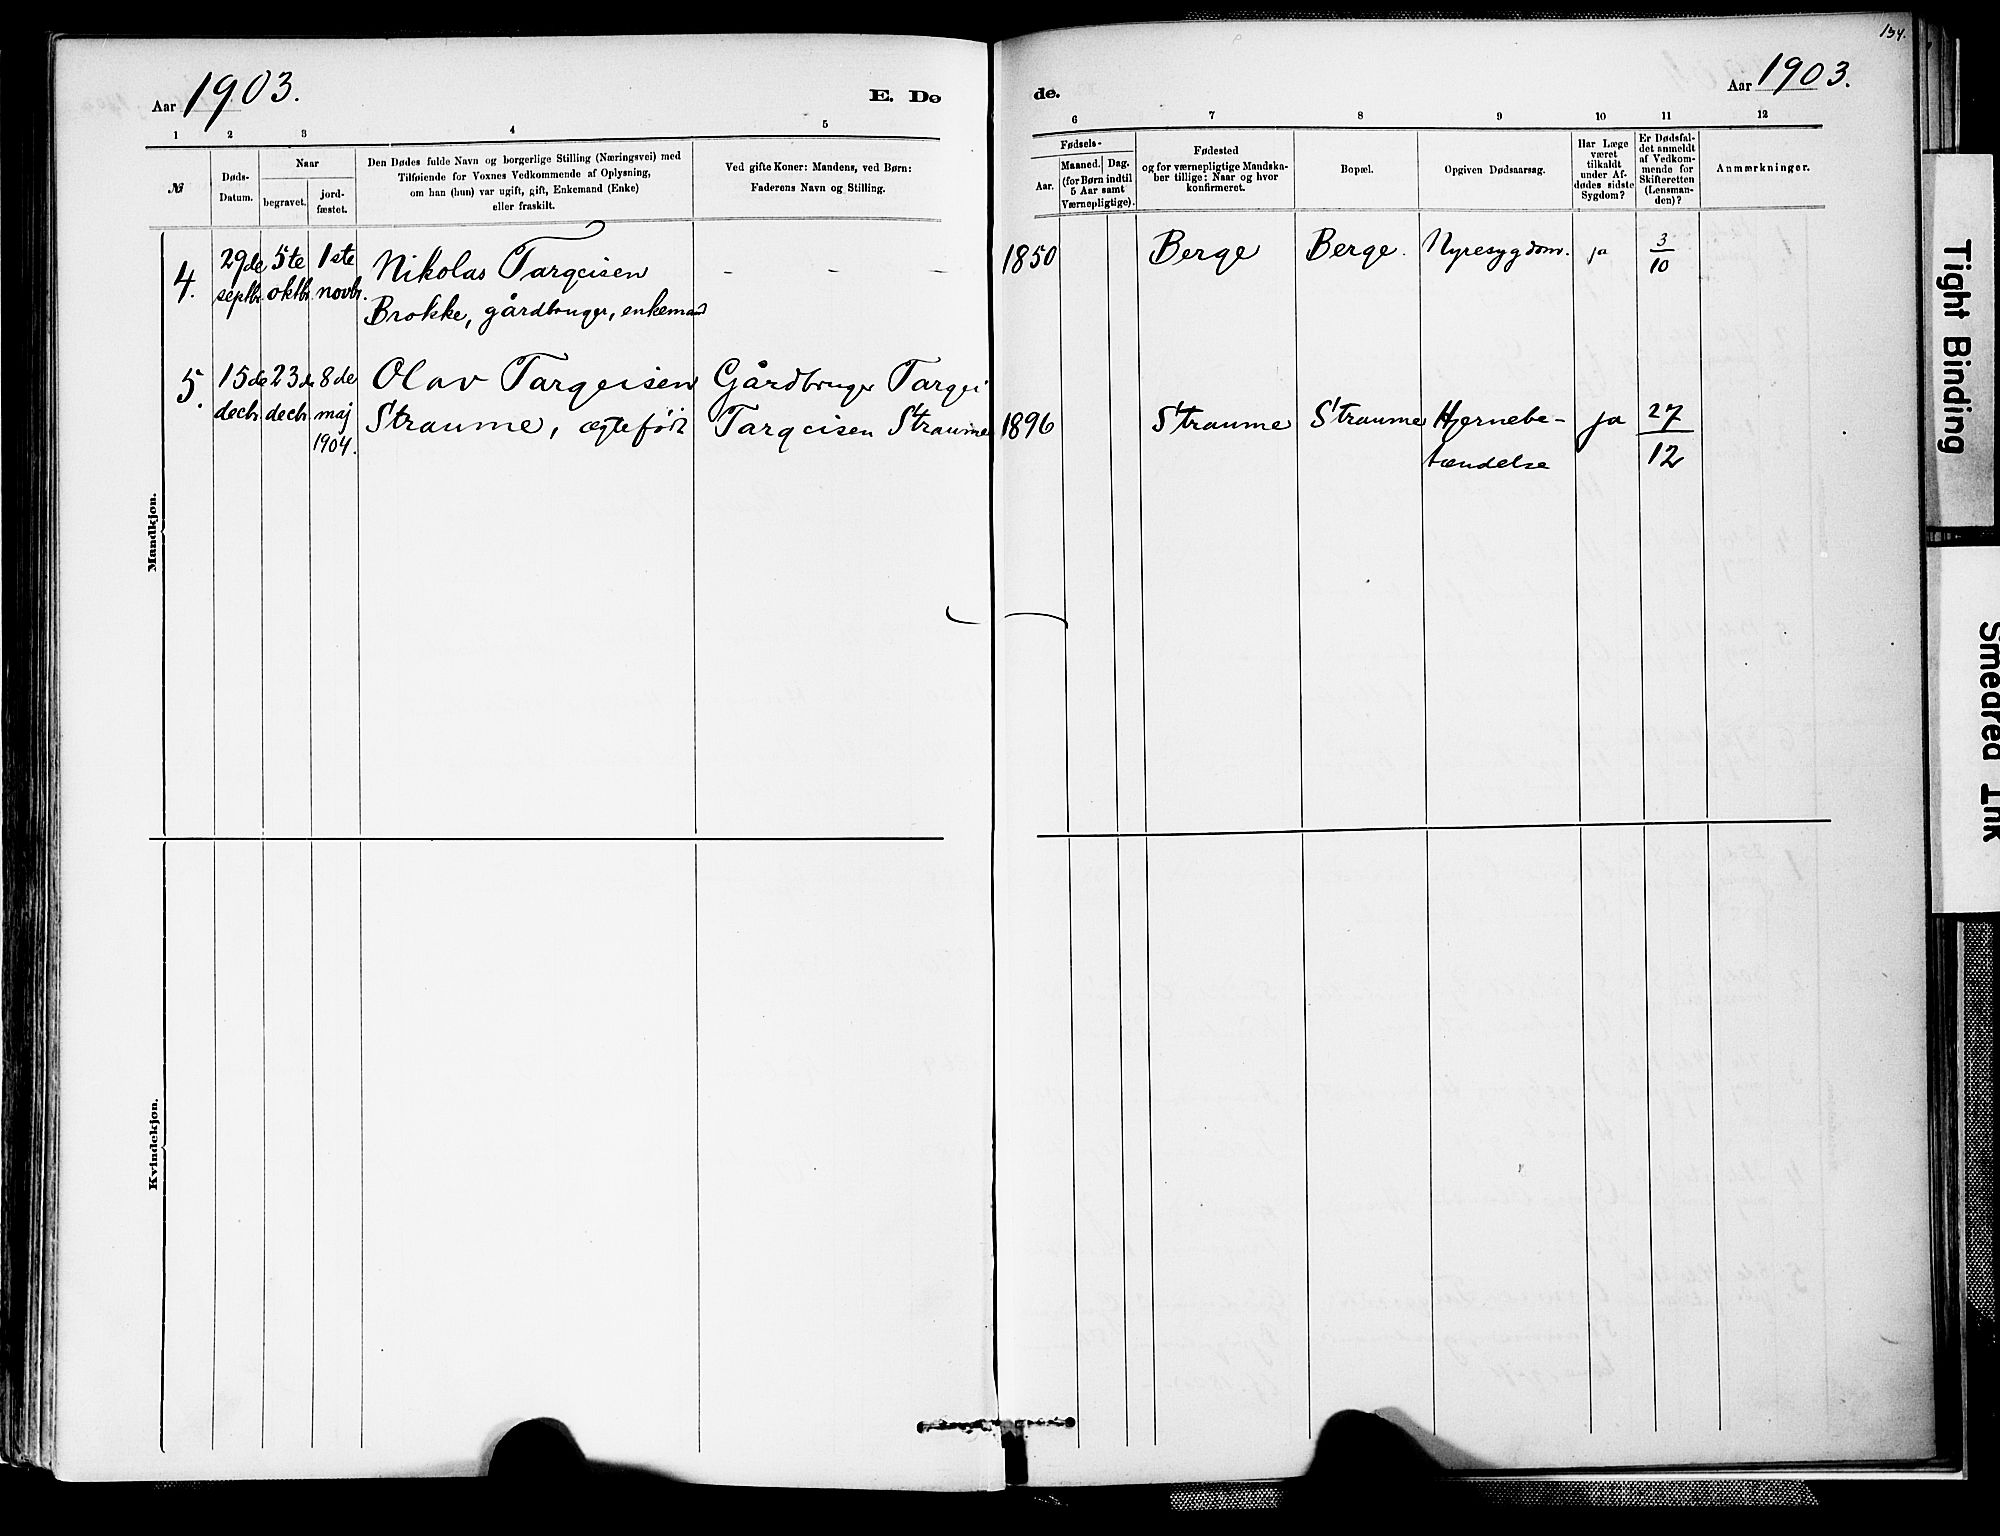 134.
Aar 1903.
E. Dø
de.
Aar 1903.
1 2 3 4 5
6 7 8 9 10 11 12
№
Døds-
Datum.
Naar
begravet.
jord-
fæstet.
Den Dødes fulde Navn og borgerlige Stilling (Næringsvei) med
Tilføiende for Voxnes Vedkommende af Oplysning,
om han (hun) var ugift, gift, Enkemand (Enke)
eller fraskilt.
Ved gifte Koner: Mandens, ved Børn:
Faderens Navn og Stilling.
Fødsels-
Aar.
Maaned. Dag.
(for Børn indtil
5 Aar samt
Værnepligtige).
Fødested
og for værnepligtige Mandska-
ber tillige: Naar og hvor
konfirmeret.
Bopæl.
Opgiven Dødsaarsag.
Har Læge
været
tilkaldt
under Af-
dødes sidste
Sygdom?
Er Dødsfal-
det anmeldt
af Vedkom-
mende for
Skifteretten
(Lensman-
den)?
Anmærkninger.
Mandkjøn.
4.
29de
septbr.
5te
oktbr.
1ste
novbr.
Nikolas Targeisen
Brokke, gårdbruger, enkemand
- - - -
1850
Berge
Berge.
Nyresygdom.
ja
3
10
5.
15de
decbr.
23de
decbr.
8de
maj
1904.
Olav Targeisen
Straume, ægtefødt
Gårdbruger Targei
Targeisen Straume
1896
Straume
Straume
Hjernebe-
tændelse
ja
27
12
Kvindekjøn.
Tight Binding
Smeared Ink